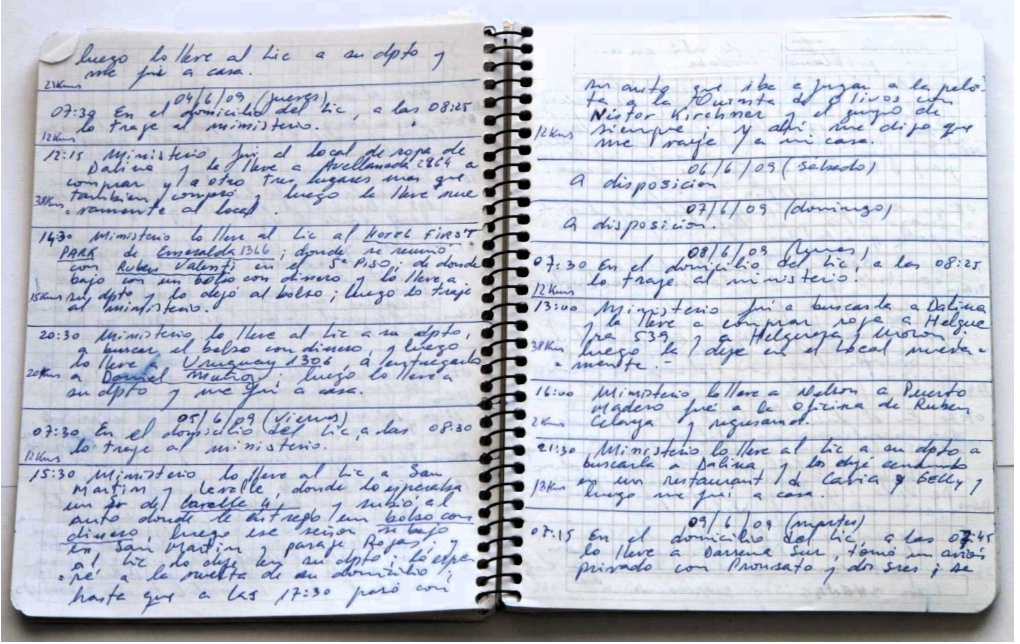 luego lo lleve al Lic a su dpto y
me fui a casa.
23Kms
04/6/09 (jueves)
07:30 En el domicilio del Lic, a las 08:25
lo traje al ministerio.
12Kms
12:15 Ministerio fui el local de ropa de
Dalina y la lleve a Avellaneda 2964 a
comprar y a otro tres lugares mas que
tambien compró, luego la lleve nue
38Kms
-vamente al local.
14:30 Ministerio lo lleve al Lic al HOTEL FIRST
PARK de Esmeralda 1366; donde se reunió
con Ruben Valenti en el 5º PISO, de donde
bajo con un bolso con dinero y lo lleve a
15Kms su dpto y lo dejó al bolso; luego lo traje
al ministerio.
20:30 Ministerio lo lleve al Lic a su dpto,
a buscar el bolso con dinero y luego
lo lleve a Uruguay 1306, a entregarlo
20Kms a Daniel Muñoz; luego lo lleve a
su dpto y me fui a casa.
05/6/09 (viernes)
07:30 En el domicilio del Lic, a las 08:30
lo traje al ministerio.
12Kms
15:30 Ministerio lo lleve al Lic a San
Martin y Lavalle, donde lo esperaba
un sr de Lavalle y subió al
auto donde le entregó un bolso con
dinero, luego ese señor se bajo
en San Martin y pasaje Rojas, y
al Lic lo deje en su dpto; lo espe
-ré a la vuelta de su domicilio,
hasta que a las 17:30 pasó con
su auto que iba a jugar a la pelo-
ta a la Quinta de Olivos con
Nestor Kirchner y el grupo de
12Kms siempre; y ahi me dijo que
me vaya a mi casa.
06/6/09 (sabado)
A disposición
07/6/09 (domingo)
A disposición.
08/6/09 (lunes)
07:30 En el domicilio del Lic, a las 08:25
lo traje al ministerio.
12Kms
13:00 Ministerio fui a buscarla a Dalina
y la lleve a comprar ropa a Helgue
ra 539, y a Helguera y Moron,
38Kms luego la deje en el local nueva-
mente.-
16:00 Ministerio lo lleve a Nelson a Puerto
Madero fué a la oficina de Ruben
2Kms y regresamos.
21:30 Ministerio lo lleve al Lic a su dpto a
buscarla a Dalina y los deje cenando
13Kms en un restaurant de Cavia y Gelly,
luego me fui a casa.
09/6/09 (martes)
07:15 En el domicilio del Lic, a las 07:45
lo lleve a Darrena Sur, tomó un avión
privado con y dos sres; se